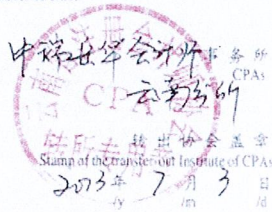 中瑞岳华会计师事务所
CPAs
云南分所
转出协会盖章
Stamp of the transfer-out Institute of CPAs
2013年 7月 3日
/y /m /d
CPA
转所专用章